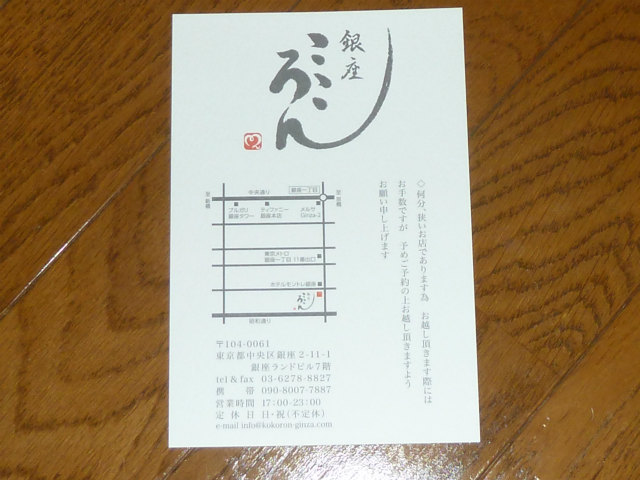 銀座
こころん
◇何分、狭いお店であります為、お越し頂きます際には
お手数ですが、予めご予約の上お越し頂きますよう
お願い申し上げます
中央通り
銀座一丁目
ブルガリ
銀座タワー
ティファニー
銀座本店
メルサ
Ginza-2
東京メトロ
銀座一丁目 11番出口
ホテルモントレ銀座
こころん
昭和通り
〒104-0061
東京都中央区銀座 2-11-1
銀座ランドビル7階
tel & fax 03-6278-8827
携 帯 090-8007-7887
営業時間 17:00-23:00
定 休 日 日・祝(不定休)
e-mail info@kokoron-ginza.com